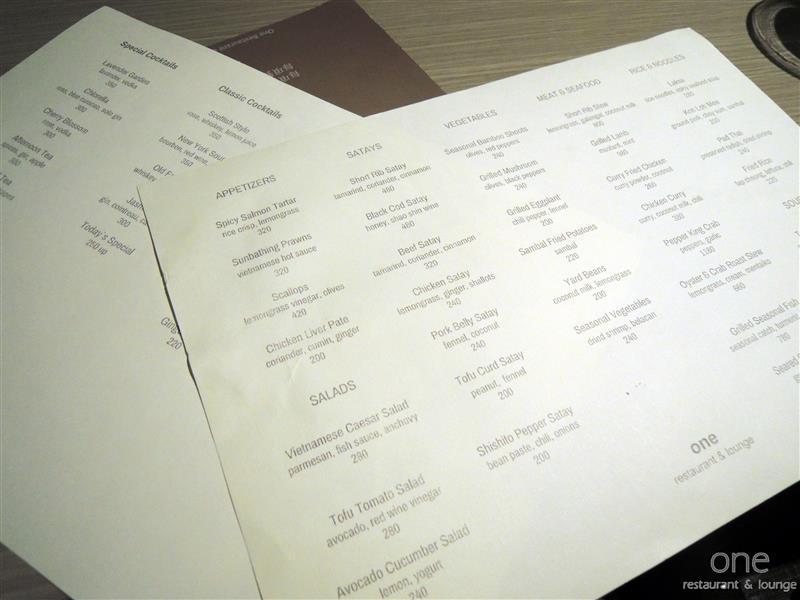 Special Cocktails
Lavender Garden
lavender, vodka
350
Chlorella
300
Cherry Blossom
rose, vodka
300
Afternoon Tea
300
Tea
Classic Cocktails
Scottish Style
rose, whiskey, lemon juice
350
New York Sour
bourbon, red wine,
350
Old F
whiskey
Jasm
gin, cointreau, ca
300
Today's Special
250 up
Ging
220
One Restaurant
APPETIZERS
Spicy Salmon Tartar
rice crisp, lemongrass
320
Sunbathing Prawns
vietnamese hot sauce
320
Scallops
lemongrass vinegar, olives
420
Chicken Liver Pate
coriander, cumin, ginger
200
SALADS
Vietnamese Caesar Salad
parmesan, fish sauce, anchuvy
280
Tofu Tomato Salad
avocado, red wine vinegar
280
Avocado Cucumber Salad
lemon, yogurt
240
SATAYS
Short Rib Satay
tamarind, coriander, cinnamon
480
Black Cod Satay
honey, shao shin wine
460
Beef Satay
tamarind, coriander, cinnamon
320
Chicken Satay
lemongrass, ginger, shallots
240
Pork Belly Satay
fennel, coconut
240
Tofu Curd Satay
peanut, fennel
200
Shishito Pepper Satay
bean paste, chili, onions
200
VEGETABLES
Seasonal Bamboo Shoots
olives, red peppers
240
Grilled Mushroom
olives, black peppers
240
Grilled Eggplant
chili pepper, fennel
200
Sambal Fried Potatoes
sambal
220
Yard Beans
coconut milk, lemongrass
200
Seasonal Vegetables
dried shrimp, balacan
240
MEAT & SEAFOOD
Short Rib Stew
lemongrass, galangal, coconut milk
Grilled Lamb
mustard, mint
980
Curry Fried Chicken
curry powder, coconut
260
Chicken Curry
curry, coconut milk, chili
380
Pepper King Crab
peppers, garlic
1180
Oyster & Crab Roast Stew
lemongrass, cream, mentaiko
660
Grilled Seasonal Fish
seasonal catch, turmeric
780
Seared
RICE & NOODLES
Laksa
rice noodles, spicy seafood soup
Kon Loh Mee
ground pork, choy sum, sambal
Pad Thai
preserved radish, dried shrimp
240
Fried Rice
lap cheong, lettuce, milk
220
SOU
one
restaurant & lounge
one
restaurant & lounge